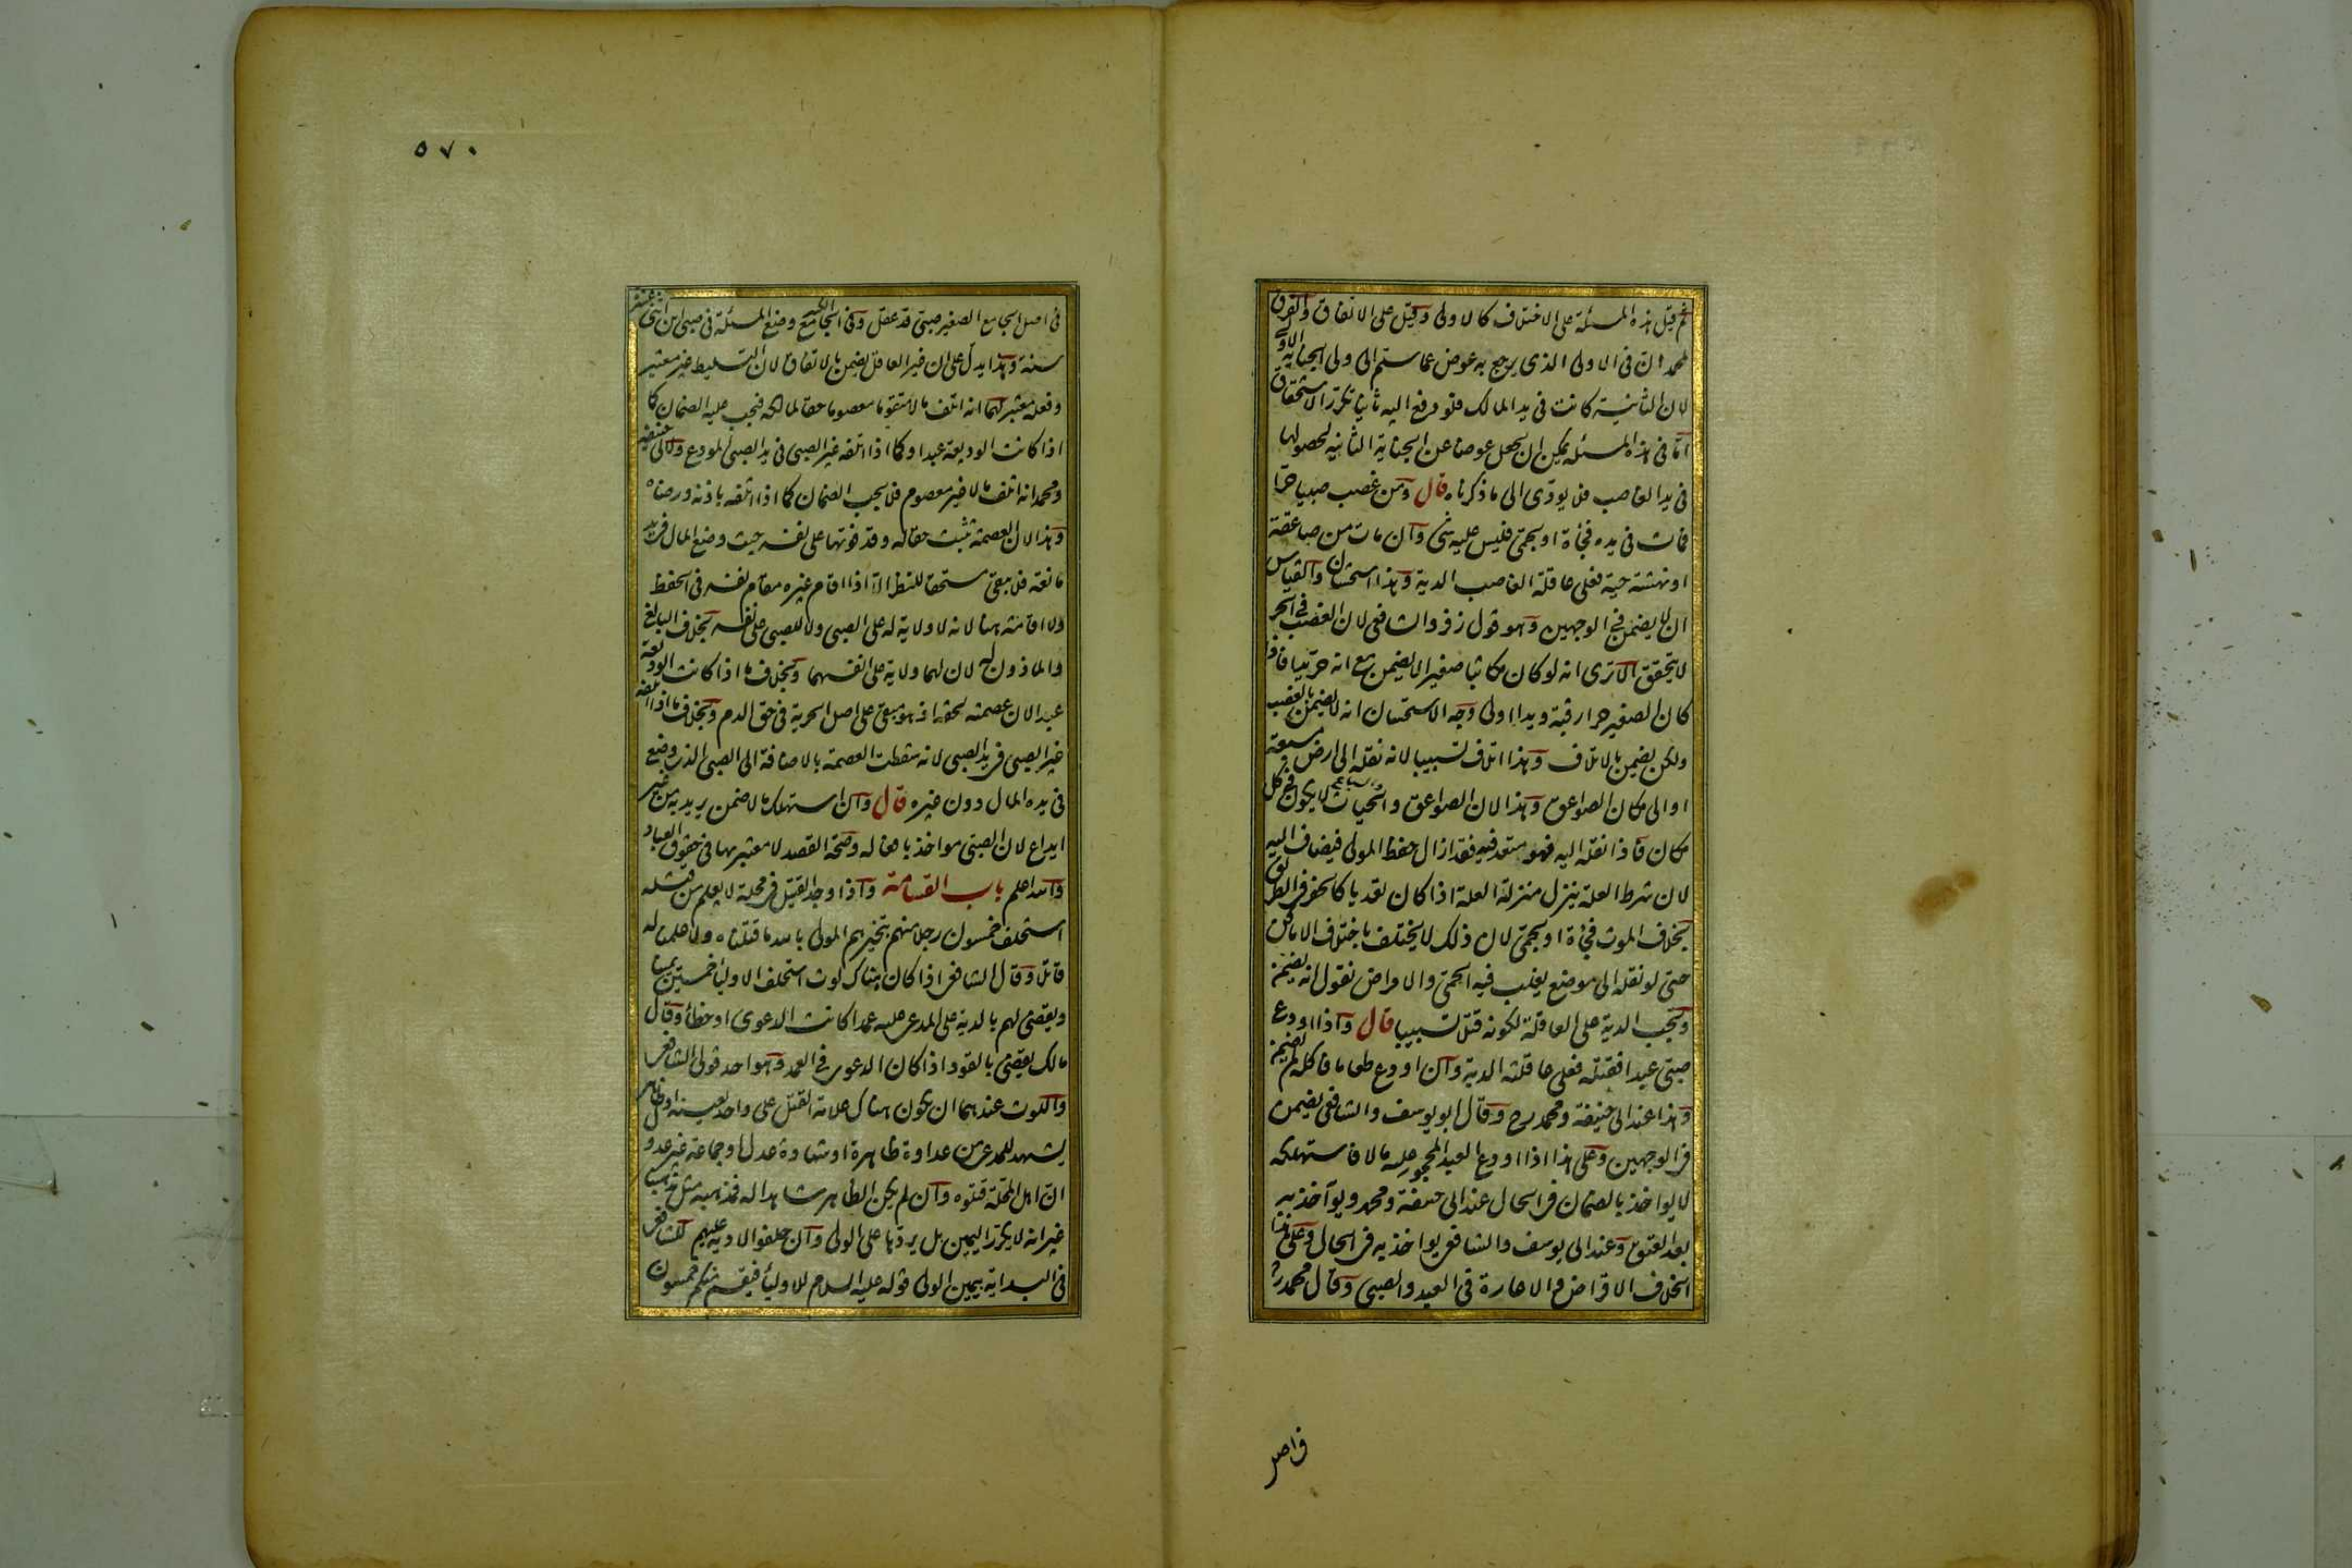 ثم قيل هذه المسئلة على الاختلاف كالاولى وقيل على الاتفاق والفرق
لمحمد ان فى الاولى الذى يرجع به عوض عما سلم الى ولى الجناية الاولى
لان الثانية كانت فى يد المالك فلو دفع اليه ثانيا يتكرر الاستحقاق
اما فى هذه المسئلة يمكن ان يجعل عوضا عن الجناية الثانية لحصولها
فى يد الغاصب فلا يؤدى الى ما ذكرناه قال ومن غصب صبيا حرا
فمات فى يده فجأة او بحمى فليس عليه شئ وان مات من صاعقة
او نهشته حية فعلى عاقلة الغاصب الدية وهذا استحسان والقياس
ان لا يضمن فى الوجهين وهو قول زفر والشافعى لان الغصب فى الحر
لا يتحقق الا ترى انه لو كان مكاتبا صغيرا لا يضمن مع انه حر يدا فاذا
كان الصغير حرا رقبة ويدا اولى وجه الاستحسان انه لا يضمن بالغصب
ولكن يضمن بالاتلاف وهذا اتلاف تسبيبا لانه نقله الى ارض مسبعة
او الى مكان الصواعق وهذا لان الصواعق والحيات والسباع لا يكون فى كل
مكان فاذا نقله اليه فهو متعد فيه فقد ازال حفظ المولى فيضاف اليه
لان شرط العلة ينزل منزلة العلة اذا كان تعديا كالحفر فى الطريق
بخلاف الموت فجأة او بحمى لان ذلك لا يختلف باختلاف الاماكن
حتى لو نقله الى موضع يغلب فيه الحمى والامراض نقول انه يضمن
وتجب الدية على العاقلة لكونه قتلا تسبيبا قال واذا اودع
صبى عبدا فقتله فعلى عاقلته الدية وان اودع طعاما فاكله لم يضمن
وهذا عند ابى حنيفة ومحمد رح وقال ابو يوسف والشافعى يضمن
فى الوجهين وعلى هذا اذا اودع العبد المحجور عليه مالا فاستهلكه
لا يواخذ بالضمان فى الحال عند ابى حنيفة ومحمد ويواخذ به
بعد العتق وعند ابى يوسف والشافعى يواخذ به فى الحال وعلى هذا
الخلاف الاقراض والاعارة فى العبد والصبى وقال محمد رح
فى اصل
٥٧٠
فى اصل الجامع الصغير صبى قد عقل وفى الجامع الكبير وضع المسئلة فى صبى ابن اثنى عشر
سنة وهذا يدل على ان غير العاقل يضمن بالاتفاق لان التسليط غير معتبر
وفعله معتبر لهما انه اتلف مالا متقوما معصوما حقا لمالكه فيجب عليه الضمان كما
اذا كانت الوديعة عبدا وكما اذا اتلفه غير الصبى فى يد الصبى المودع ولابى حنيفة
ومحمد انه اتلف مالا غير معصوم فلا يجب الضمان كما اذا اتلفه باذنه ورضاه
وهذا لان العصمة تثبت حقا له وقد فوتها على نفسه حيث وضع المال فى يد
مانعة فلا يبقى مستحقا للنظر الا اذا اقام غيره مقام نفسه فى الحفظ
ولا اقامة هنا لانه لا ولاية له على الصبى ولا للصبى على نفسه بخلاف البالغ
والماذون له لان لهما ولاية على انفسهما وبخلاف ما اذا كانت الوديعة
عبدا لان عصمته لحقه اذ هو مبقى على اصل الحرية فى حق الدم وبخلاف ما اذا اتلفه
غير الصبى فى يد الصبى لانه سقطت العصمة بالاضافة الى الصبى الذى وضع
فى يده المال دون غيره قال وان استهلك مالا ضمن يريد به من غير
ايداع لان الصبى مواخذ بافعاله وصحة القصد لا معتبر بها فى حقوق العباد
والله اعلم باب القسامة واذا وجد القتيل فى محلة لا يعلم من قتله
استحلف خمسون رجلا منهم يتخيرهم المولى بالله ما قتلناه ولا علمنا له
قاتلا وقال الشافعى اذا كان هناك لوث استحلف الاولياء خمسين يمينا
ويقضى لهم بالدية على المدعى عليه عمدا كانت الدعوى او خطأ وقال
مالك يقضى بالقود اذا كان الدعوى فى العمد وهو احد قولى الشافعى
واللوث عندهما ان يكون هناك علامة القتل على واحد بعينه او ظاهر
يشهد للمدعى من عداوة ظاهرة او شهادة عدل او جماعة غير عدو
ان اهل المحلة قتلوه وان لم يكن الظاهر شاهدا له فمذهبه مثل مذهبنا
غير انه لا يكرر اليمين بل يردها على الولى وان حلفوا لا دية عليهم للشافعى
فى البداية بيمين الولى قوله عليه السلام للاولياء فيقسم منكم خمسون